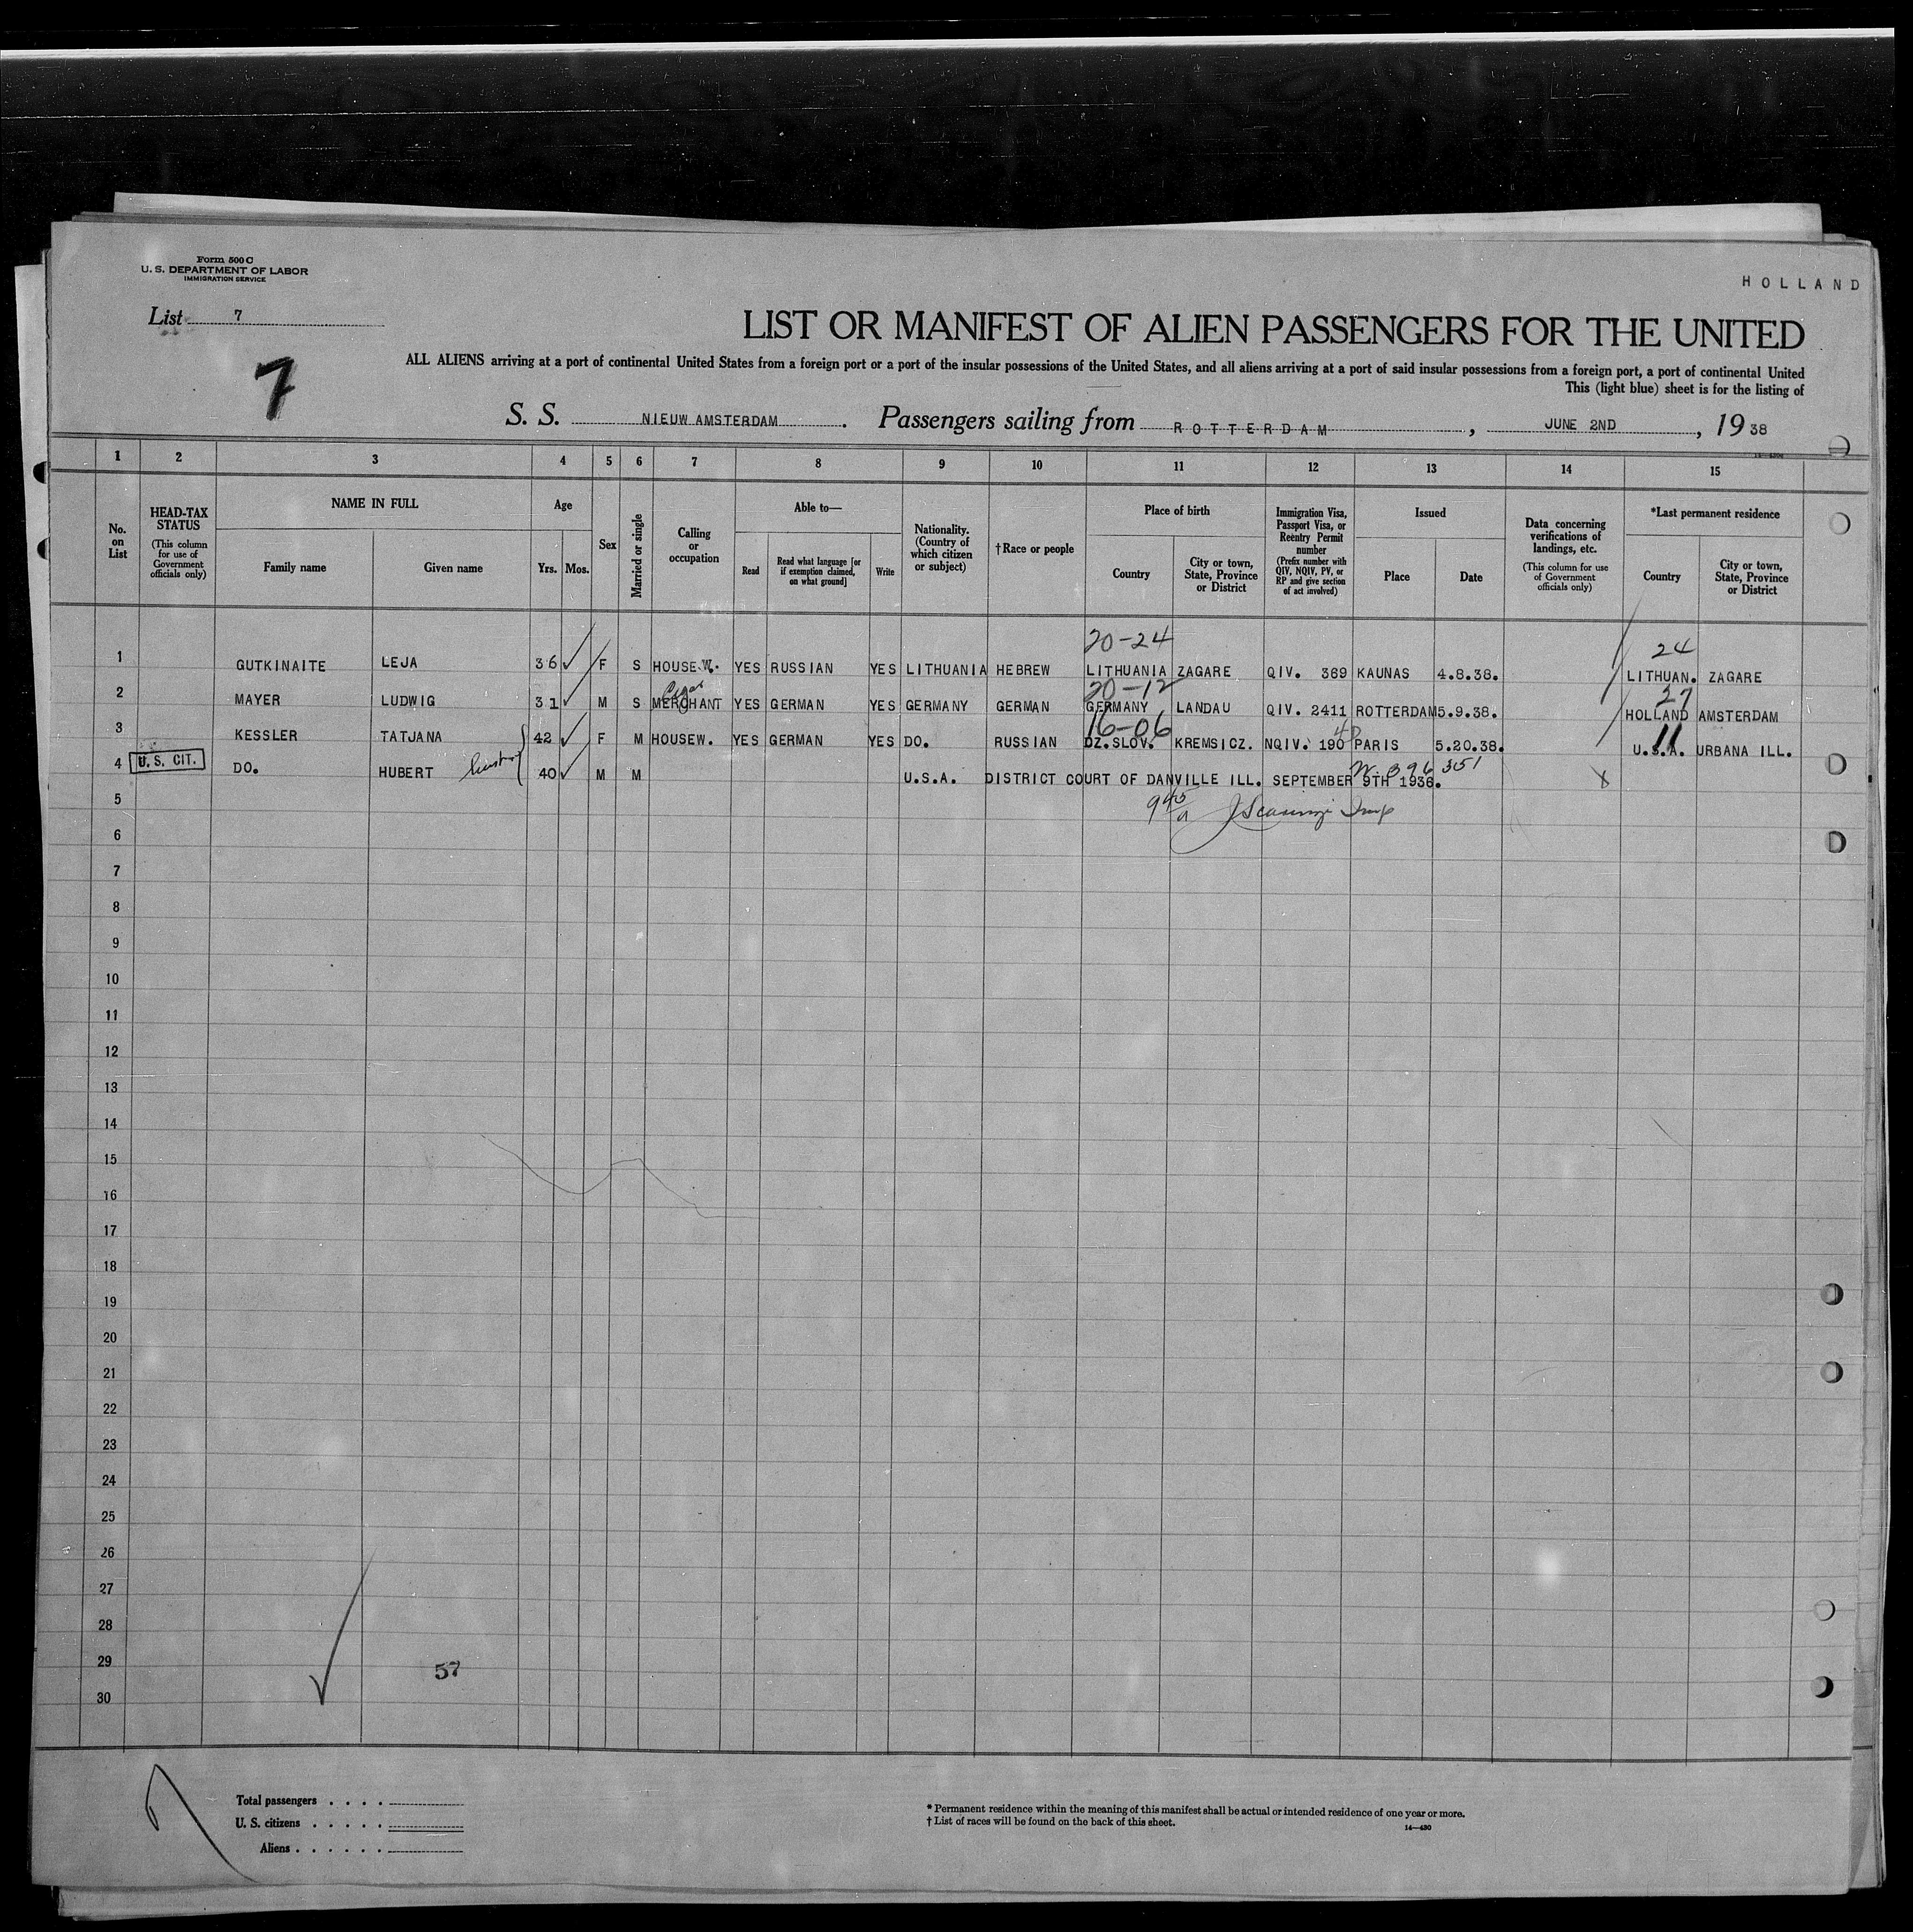 Form 500 C
U. S. DEPARTMENT OF LABOR
IMMIGRATION SERVICE
HOLLAND
List 7
7
LIST OR MANIFEST OF ALIEN PASSENGERS FOR THE UNITED
ALL ALIENS arriving at a port of continental United States from a foreign port or a port of the insular possessions of the United States, and all aliens arriving at a port of said insular possessions from a foreign port, a port of continental United
This (light blue) sheet is for the listing of
S. S. NIEUW AMSTERDAM. Passengers sailing from ROTTERDAM, JUNE 2ND, 1938
1 2 3 4 5 6 7 8 9 10 11 12 13 14 15
No. on List
HEAD-TAX STATUS
(This column for use of Government officials only)
NAME IN FULL
Family name
Given name
Age
Yrs. Mos.
Sex
Married or single
Calling or occupation
Able to—
Read
Read what language [or if exemption claimed, on what ground]
Write
Nationality. (Country of which citizen or subject)
†Race or people
Place of birth
Country
City or town, State, Province or District
Immigration Visa, Passport Visa, or Reentry Permit number
(Prefix number with QIV, NQIV, PV, or RP and give section of act involved)
Issued
Place
Date
Data concerning verifications of landings, etc.
(This column for use of Government officials only)
*Last permanent residence
Country
City or town, State, Province or District
20-24 24
1 GUTKINAITE LEJA 36 F S HOUSEW. YES RUSSIAN YES LITHUANIA HEBREW LITHUANIA ZAGARE QIV. 369 KAUNAS 4.8.38. LITHUAN. ZAGARE
Cigar 20-12 27
2 MAYER LUDWIG 31 M S MERCHANT YES GERMAN YES GERMANY GERMAN GERMANY LANDAU QIV. 2411 ROTTERDAM 5.9.38. HOLLAND AMSTERDAM
16-06 11
3 KESSLER TATJANA 42 F M HOUSEW. YES GERMAN YES DO. RUSSIAN DZ.SLOV. KREMSICZ. NQIV. 190 PARIS 5.20.38. U.S.A. URBANA ILL.
4 U.S. CIT. DO. HUBERT 40 M M U.S.A. DISTRICT COURT OF DANVILLE ILL. SEPTEMBER 9TH 1936.
5
6
7
8
9
10
11
12
13
14
15
16
17
18
19
20
21
22
23
24
25
26
27
28
29
30
57
Total passengers . . . .
U. S. citizens . . . . .
Aliens . . . . . .
* Permanent residence within the meaning of this manifest shall be actual or intended residence of one year or more.
† List of races will be found on the back of this sheet.
14—430